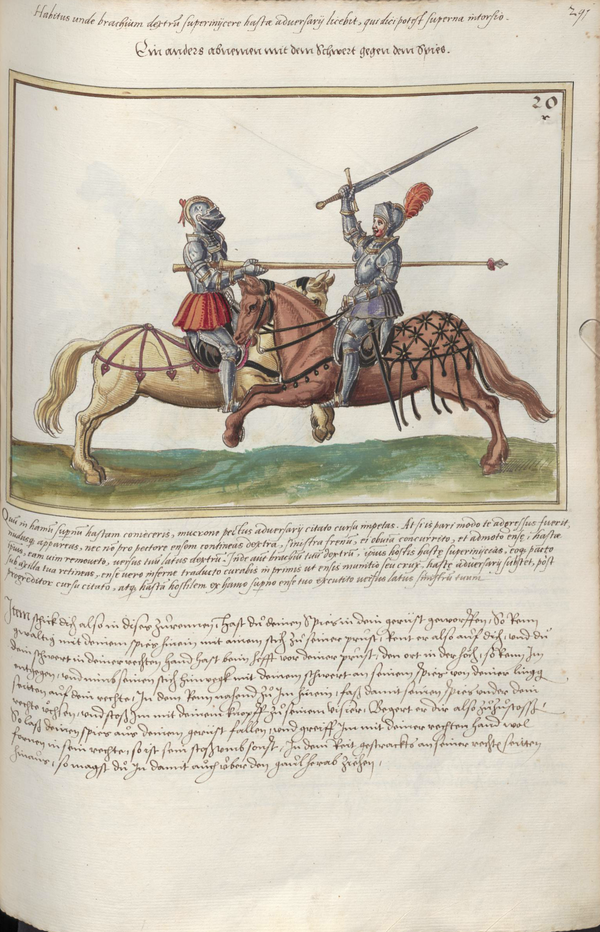 Habitus unde brachium dextrũ superinijcere hastæ adversarij licebit, qui dici potest superna intorsio.
297
Ein anders abnemen mit dem Schwert gegen dem Spies.
20
Qum in hamũ supernũ hastam conieceris, mucrone pectus adversarij citato cursu impetas. At si is pari modo te adgressus fuerit,
appareas, nec nõ pro pectore ensem contineas dextra, sinistra frenũ, ei obuia concurrito, et admoto ense hastæ
ipsius, eam uim remoueto, uersus tuũ latus dextrũ. Inde aut brachiũ tuũ dextrũ, ipsius hostis hastæ superinijceas, eoq. pacto
sub axilla tua retineas, ense uero inferne traducto curabis in primis ut ensis munitio seu crux, hastæ adversarij substet, pòst
progreditor cursu citato, atq. hastã hostilem ex hamo superno ense tuo excutito uersus latus sinistrũ tuum.
Item schick dich also in diser zurennen, hast du deinen Spies in dem gerüst geworffen, So Renn
gwaltig mit deinem spies hinein mit ainem stich zu seiner prust, Rent er also auf dich, und du
dein schwert in deiner rechten hand hast beim hefft vor deiner prust, den ort in der höch, so Renn Im
entgegen, und nimb seinen stich hinwegk mit deinem schwert an seinem spies von deiner lingg
seitten auf dein rechte, In dem Renn nahend zu Im hinein, fass damit seinen spies under dein
rechte vchsen, und stoss Im mit deinem knopff zu seinem visier, Begert er dir also zuzustossen,
So lass deinen spies aus deinem gerüst fallen, und greiff Im mit deiner rechten hand wol
fornen in sein rechte, so ist sein stoss umb sonst, In dem Reit gestrackts an seiner recht seitten
hinaus, so magst du In damit auch uber den gaul herab ziehen,